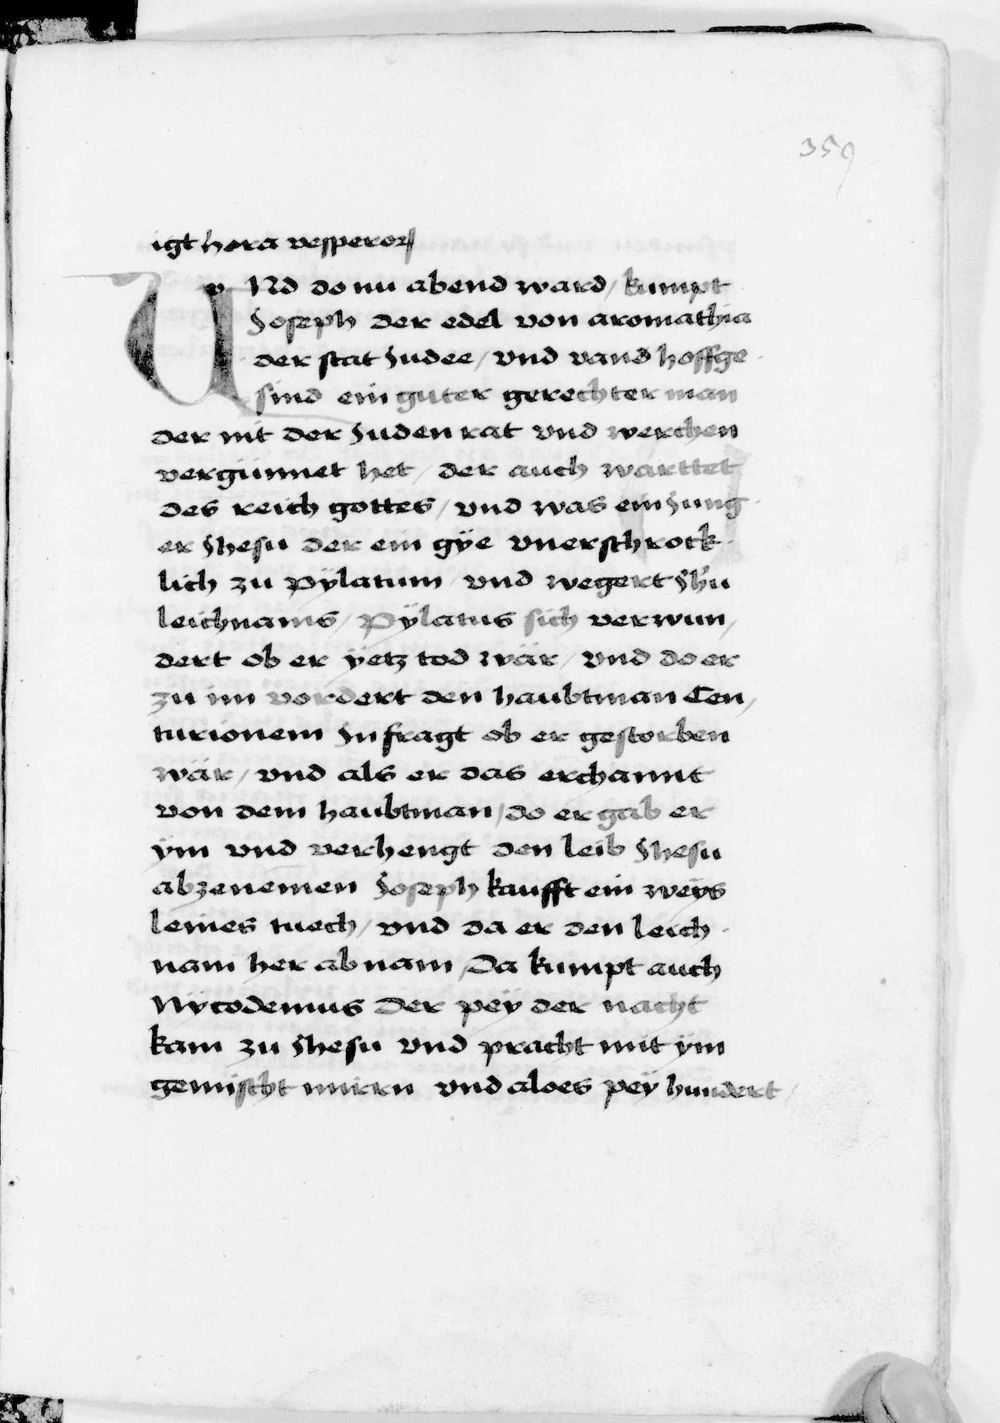 359
igt hora vesperoꝝ
UNd do nu abend ward / kumpt
Joseph der edel von aromathia
der stat Judee / vnd vand hoffge
sind ein guter gerechter man
der nit der Juden rat vnd werchen
vergünnet het / der auch warttet
des reich gottes / vnd was ein Jung
er Jhesu der ein gÿe vnerschrock
lich zu Pÿlatum vnd wegert Jhu
leichnams / Pÿlatus sich verwun /
dert ob er ÿetz tod wär / vnd do er
zu im vordert den haubtman Cen /
turionem Jn fragt ob er gestorben
wär / vnd als er das erchannt
von dem haubtman / do er gab er
ÿm vnd verhengt den leib Jhesu
abzenemen Joseph kaufft ein weÿs
leines tuech / vnd da er den leich
nam her ab nam / Da kumpt auch
Nÿcodemus Der peÿ der nacht
kam zu Jhesu vnd pracht mit ÿm
gemischt mirrn vnd aloes peÿ hundert /